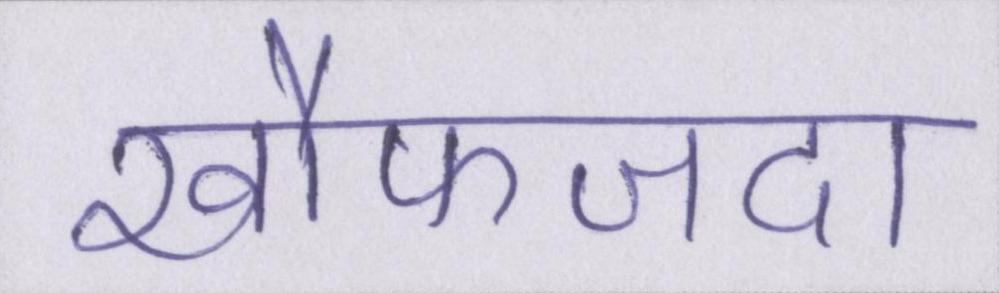 खौफजदा